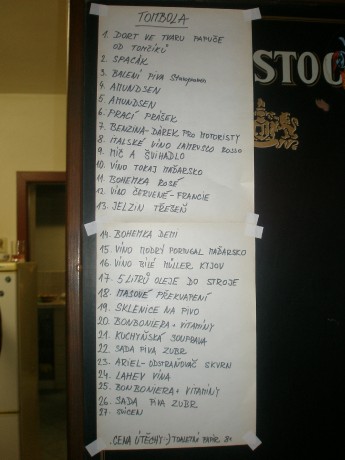 TOMBOLA
1. DORT VE TVARU PAPUČE
OD TONČÍKŮ
2. SPACÁK
3. BALENÍ PIVA Staropramen
4. AMUNDSEN
5. AMUNDSEN
6. PRACÍ PRÁŠEK
7. BENZINA-DÁREK PRO MOTORISTY
8. ITALSKÉ VÍNO LAMBUSCO ROSSO
9. MÍČ A ŠVIHADLO
10. VÍNO TOKAJ MAĎARSKO
11. BOHEMKA ROSE
12. VÍNO ČERVENÉ-FRANCIE
13. JELZIN TŘEŠEŇ
14. BOHEMKA DEMI
15. VÍNO MODRÝ PORTUGAL MAĎARSKO
16. VÍNO BÍLÉ MÜLLER KYJOV
17. 5 LITRŮ OLEJE DO STROJE
18. MASOVÉ PŘEKVAPENÍ
19. SKLENICE NA PIVO
20. BONBONIERA + VITAMÍNY
21. KUCHYŇSKÁ SOUPRAVA
22. SADA PIVA ZUBR
23. ARIEL-ODSTRAŇOVAČ SKVRN
24. LAHEV VÍNA
25. BONBONIERA + VITAMÍNY
26. SADA PIVA ZUBR
27. SVÍCEN
CENA ÚTĚCHY:-) TOALETNÍ PAPÍR 8x
STOC